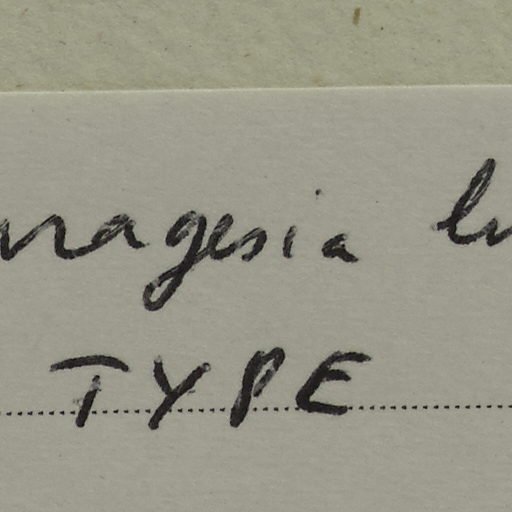 nagesia
TYPE